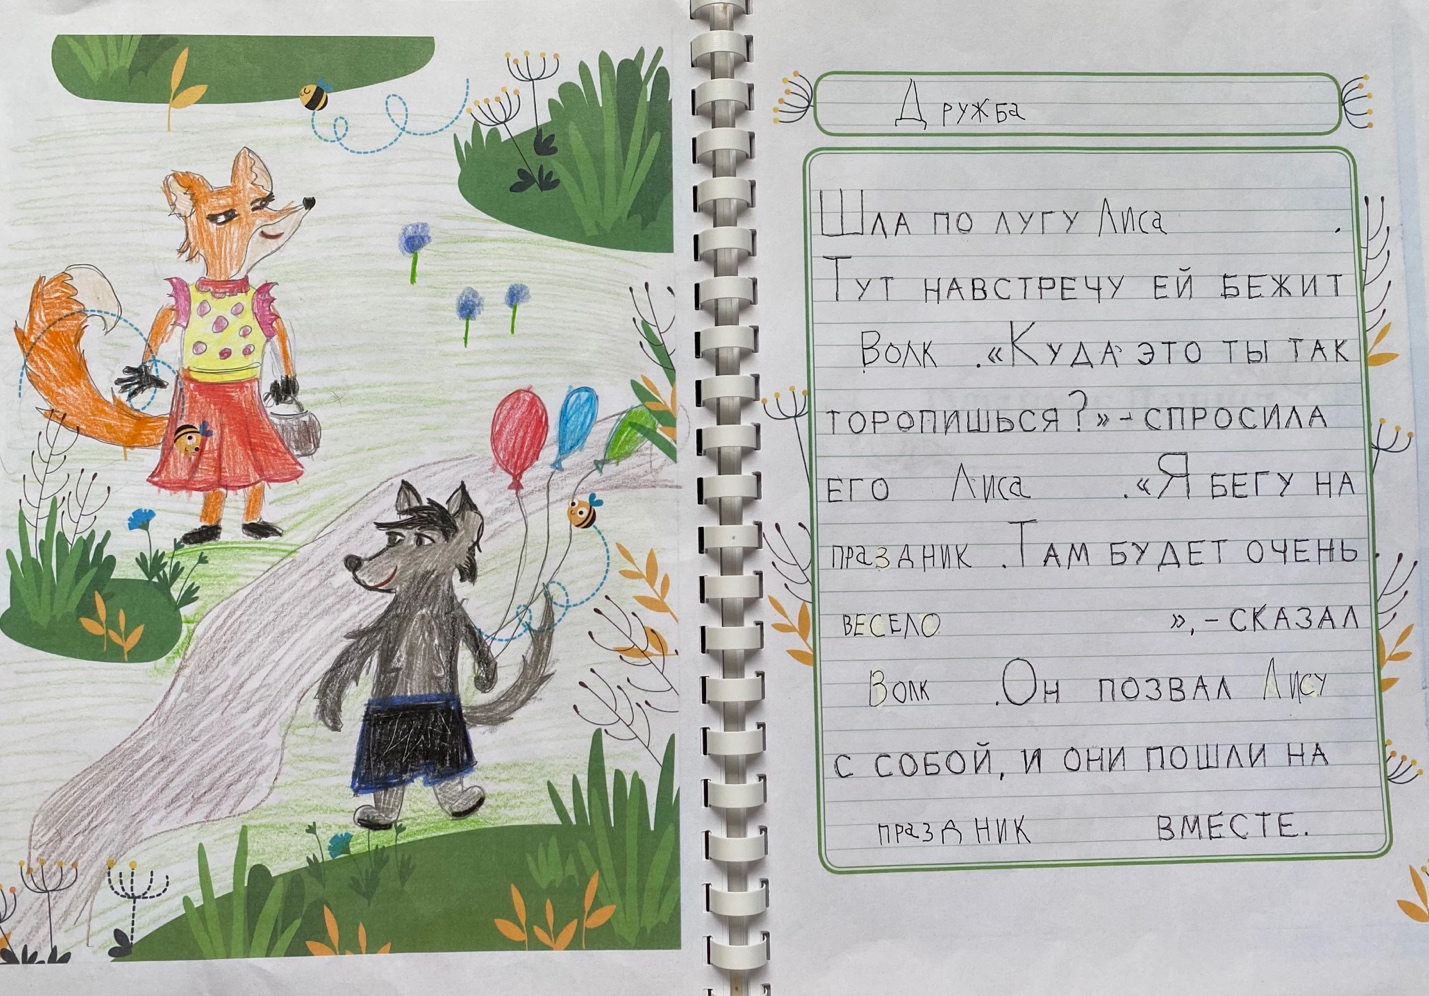 Дружба
Шла по лугу Лиса .
Тут навстречу ей бежит
Волк . «Куда это ты так
торопишься?» - спросила
его Лиса . «Я бегу на
праздник . Там будет очень
весело », - сказал
Волк . Он позвал Лису
с собой, и они пошли на
праздник вместе.